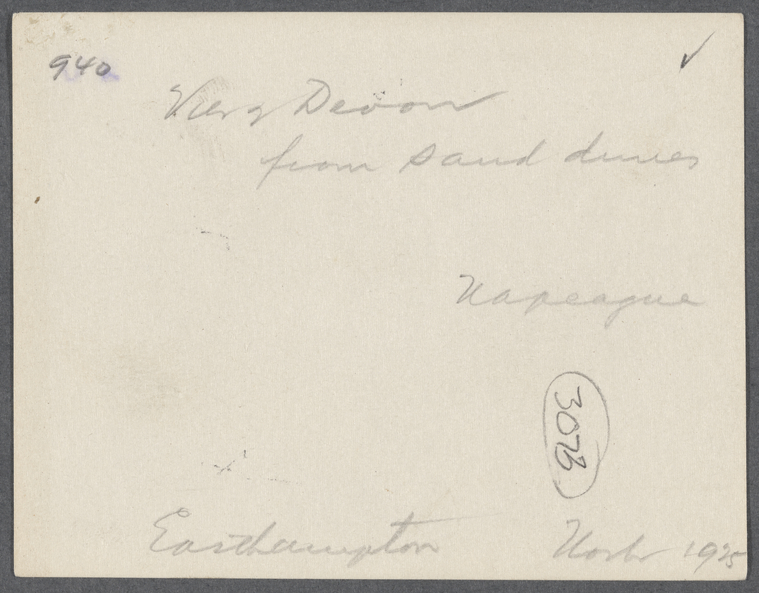 940 ✓
View Devon
from sand dunes
Napeague
307B
Easthampton 1925